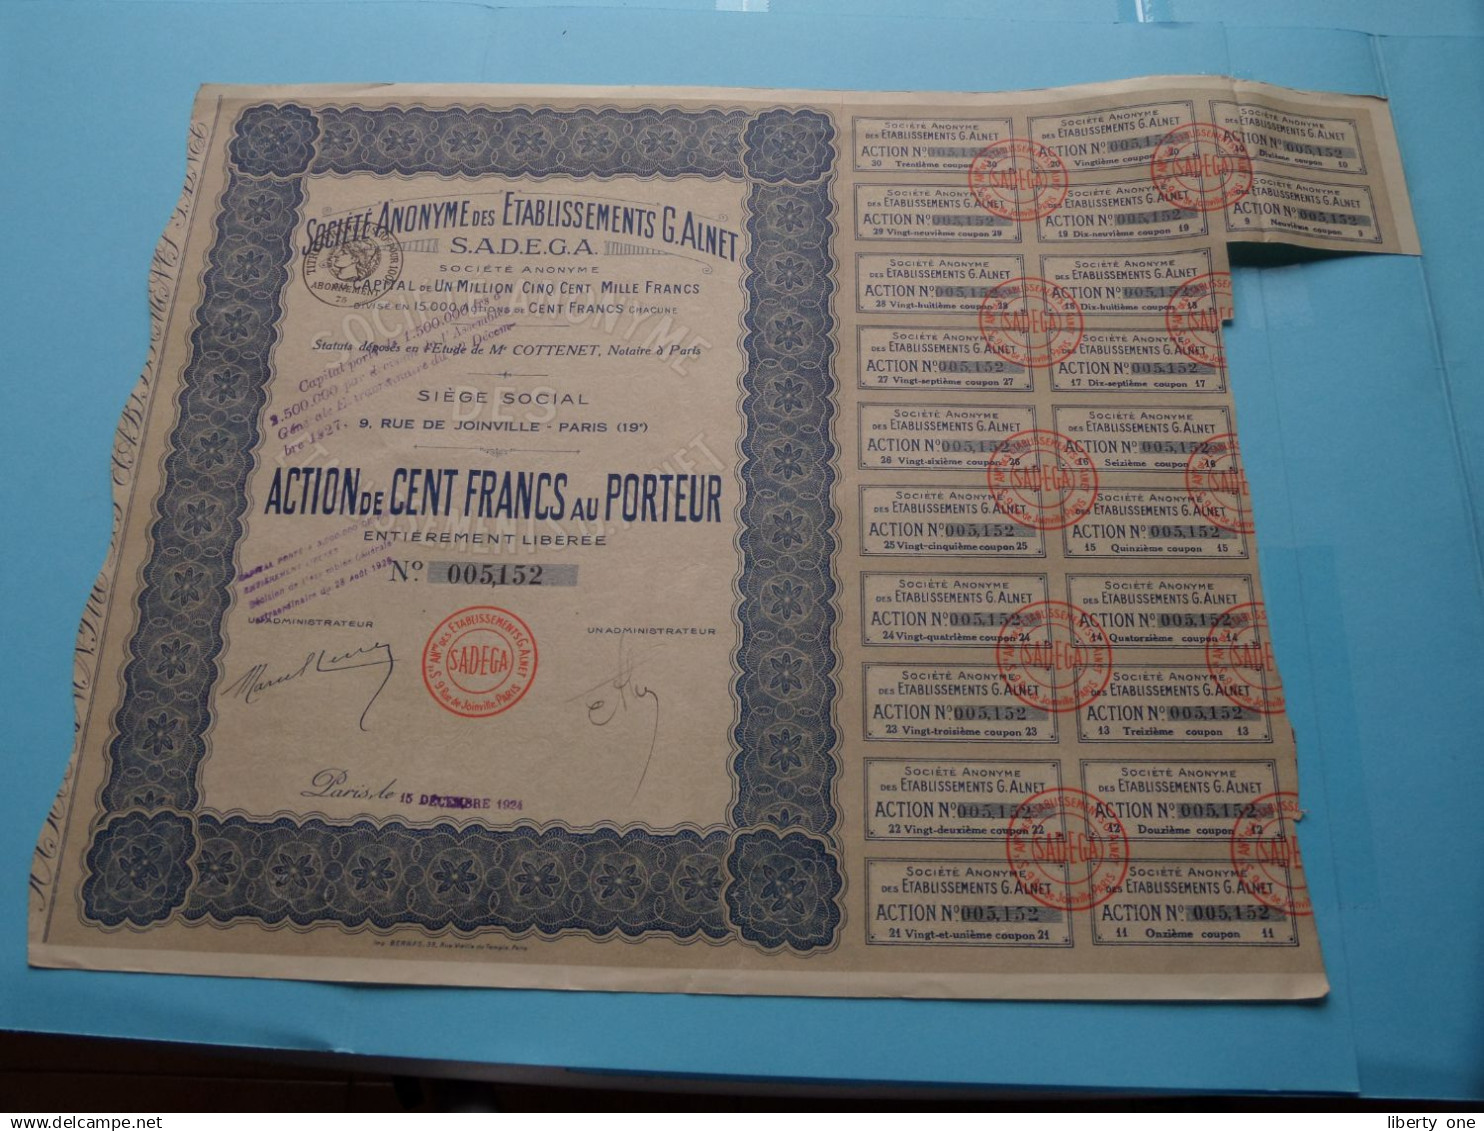 SOCIÉTÉ ANONYME DES ETABLISSEMENTS G. ALNET
S.A.D.E.G.A.
SOCIÉTÉ ANONYME
CAPITAL DE UN MILLION CINQ CENT MILLE FRANCS
DIVISÉ EN 15.000 ACTIONS DE CENT FRANCS CHACUNE
ABONNEMENT
Statuts déposés en l'Etude de Me COTTENET, Notaire à Paris
SIÈGE SOCIAL
9, RUE DE JOINVILLE - PARIS (19e)
ACTION DE CENT FRANCS AU PORTEUR
ENTIÈREMENT LIBÉRÉE
No 005,152
UN ADMINISTRATEUR
UN ADMINISTRATEUR
Sté Ame DES ETABLISSEMENTS G. ALNET
SADEGA
9 Rue de Joinville, PARIS
Paris, le 15 DECEMBRE 1924
Imp. BERGES, 38, Rue Vieille du Temple, Paris
SOCIÉTÉ ANONYME
DES ETABLISSEMENTS G. ALNET
ACTION No 005,152
30 Trentième coupon 30
SOCIÉTÉ ANONYME
DES ETABLISSEMENTS G. ALNET
ACTION No 005,152
20 Vingtième coupon 20
SOCIÉTÉ ANONYME
DES ETABLISSEMENTS G. ALNET
ACTION No 005,152
10 Dixième coupon 10
SOCIÉTÉ ANONYME
DES ETABLISSEMENTS G. ALNET
ACTION No 005,152
29 Vingt-neuvième coupon 29
SOCIÉTÉ ANONYME
DES ETABLISSEMENTS G. ALNET
ACTION No 005,152
19 Dix-neuvième coupon 19
SOCIÉTÉ ANONYME
DES ETABLISSEMENTS G. ALNET
ACTION No 005,152
9 Neuvième coupon 9
SOCIÉTÉ ANONYME
DES ETABLISSEMENTS G. ALNET
ACTION No 005,152
28 Vingt-huitième coupon 28
SOCIÉTÉ ANONYME
DES ETABLISSEMENTS G. ALNET
ACTION No 005,152
18 Dix-huitième coupon 18
SOCIÉTÉ ANONYME
DES ETABLISSEMENTS G. ALNET
ACTION No 005,152
27 Vingt-septième coupon 27
SOCIÉTÉ ANONYME
DES ETABLISSEMENTS G. ALNET
ACTION No 005,152
17 Dix-septième coupon 17
SOCIÉTÉ ANONYME
DES ETABLISSEMENTS G. ALNET
ACTION No 005,152
26 Vingt-sixième coupon 26
SOCIÉTÉ ANONYME
DES ETABLISSEMENTS G. ALNET
ACTION No 005,152
16 Seizième coupon 16
SOCIÉTÉ ANONYME
DES ETABLISSEMENTS G. ALNET
ACTION No 005,152
25 Vingt-cinquième coupon 25
SOCIÉTÉ ANONYME
DES ETABLISSEMENTS G. ALNET
ACTION No 005,152
15 Quinzième coupon 15
SOCIÉTÉ ANONYME
DES ETABLISSEMENTS G. ALNET
ACTION No 005,152
24 Vingt-quatrième coupon 24
SOCIÉTÉ ANONYME
DES ETABLISSEMENTS G. ALNET
ACTION No 005,152
14 Quatorzième coupon 14
SOCIÉTÉ ANONYME
DES ETABLISSEMENTS G. ALNET
ACTION No 005,152
23 Vingt-troisième coupon 23
SOCIÉTÉ ANONYME
DES ETABLISSEMENTS G. ALNET
ACTION No 005,152
13 Treizième coupon 13
SOCIÉTÉ ANONYME
DES ETABLISSEMENTS G. ALNET
ACTION No 005,152
22 Vingt-deuxième coupon 22
SOCIÉTÉ ANONYME
DES ETABLISSEMENTS G. ALNET
ACTION No 005,152
12 Douzième coupon 12
SOCIÉTÉ ANONYME
DES ETABLISSEMENTS G. ALNET
ACTION No 005,152
21 Vingt-et-unième coupon 21
SOCIÉTÉ ANONYME
DES ETABLISSEMENTS G. ALNET
ACTION No 005,152
11 Onzième coupon 11
liberty one